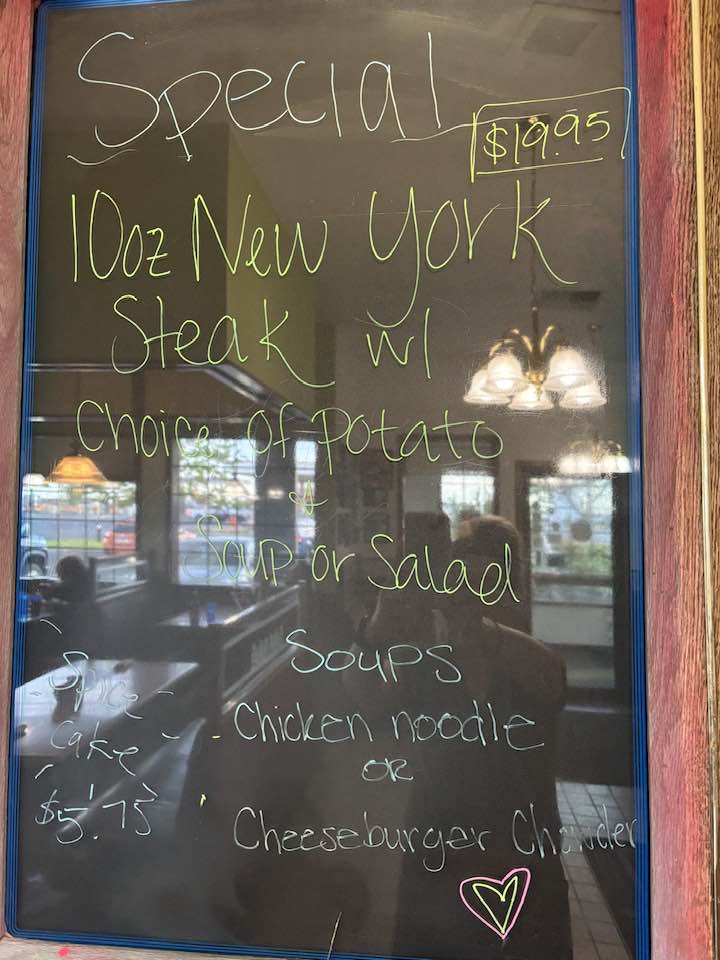 Special
$19.95
10oz New York
Steak w/
Choice of Potato
&
Soup or Salad
Soups
Chicken noodle
OR
Cheeseburger Chowder
Spice
Cake
$5.75